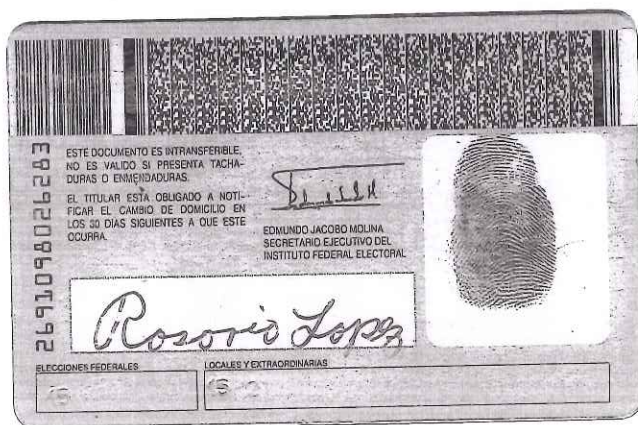 2691098026283
ESTE DOCUMENTO ES INTRANSFERIBLE,
NO ES VALIDO SI PRESENTA TACHA-
DURAS O ENMENDADURAS.
EL TITULAR ESTA OBLIGADO A NOTI-
FICAR EL CAMBIO DE DOMICILIO EN
LOS 30 DIAS SIGUIENTES A QUE ESTE
OCURRA.
EDMUNDO JACOBO MOLINA
SECRETARIO EJECUTIVO DEL
INSTITUTO FEDERAL ELECTORAL
Rosorio Lopez
ELECCIONES FEDERALES
LOCALES Y EXTRAORDINARIAS